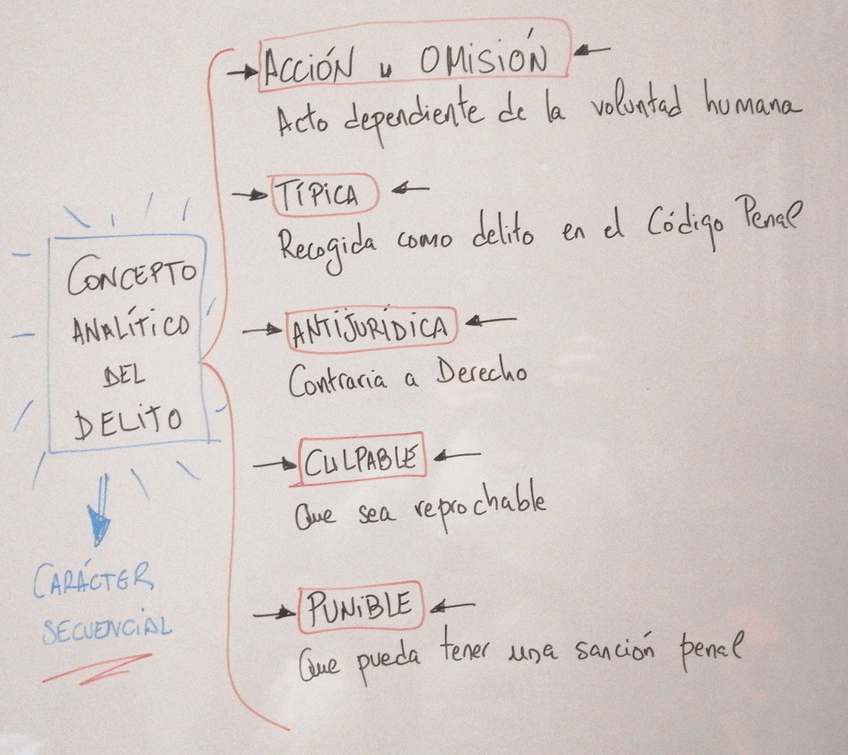 CONCEPTO
ANALÍTICO
DEL
DELITO
CARÁCTER
SECUENCIAL
ACCIÓN u OMISIÓN
Acto dependiente de la voluntad humana
TÍPICA
Recogida como delito en el Código Penal
ANTIJURÍDICA
Contraria a Derecho
CULPABLE
Que sea reprochable
PUNIBLE
Que pueda tener una sanción penal